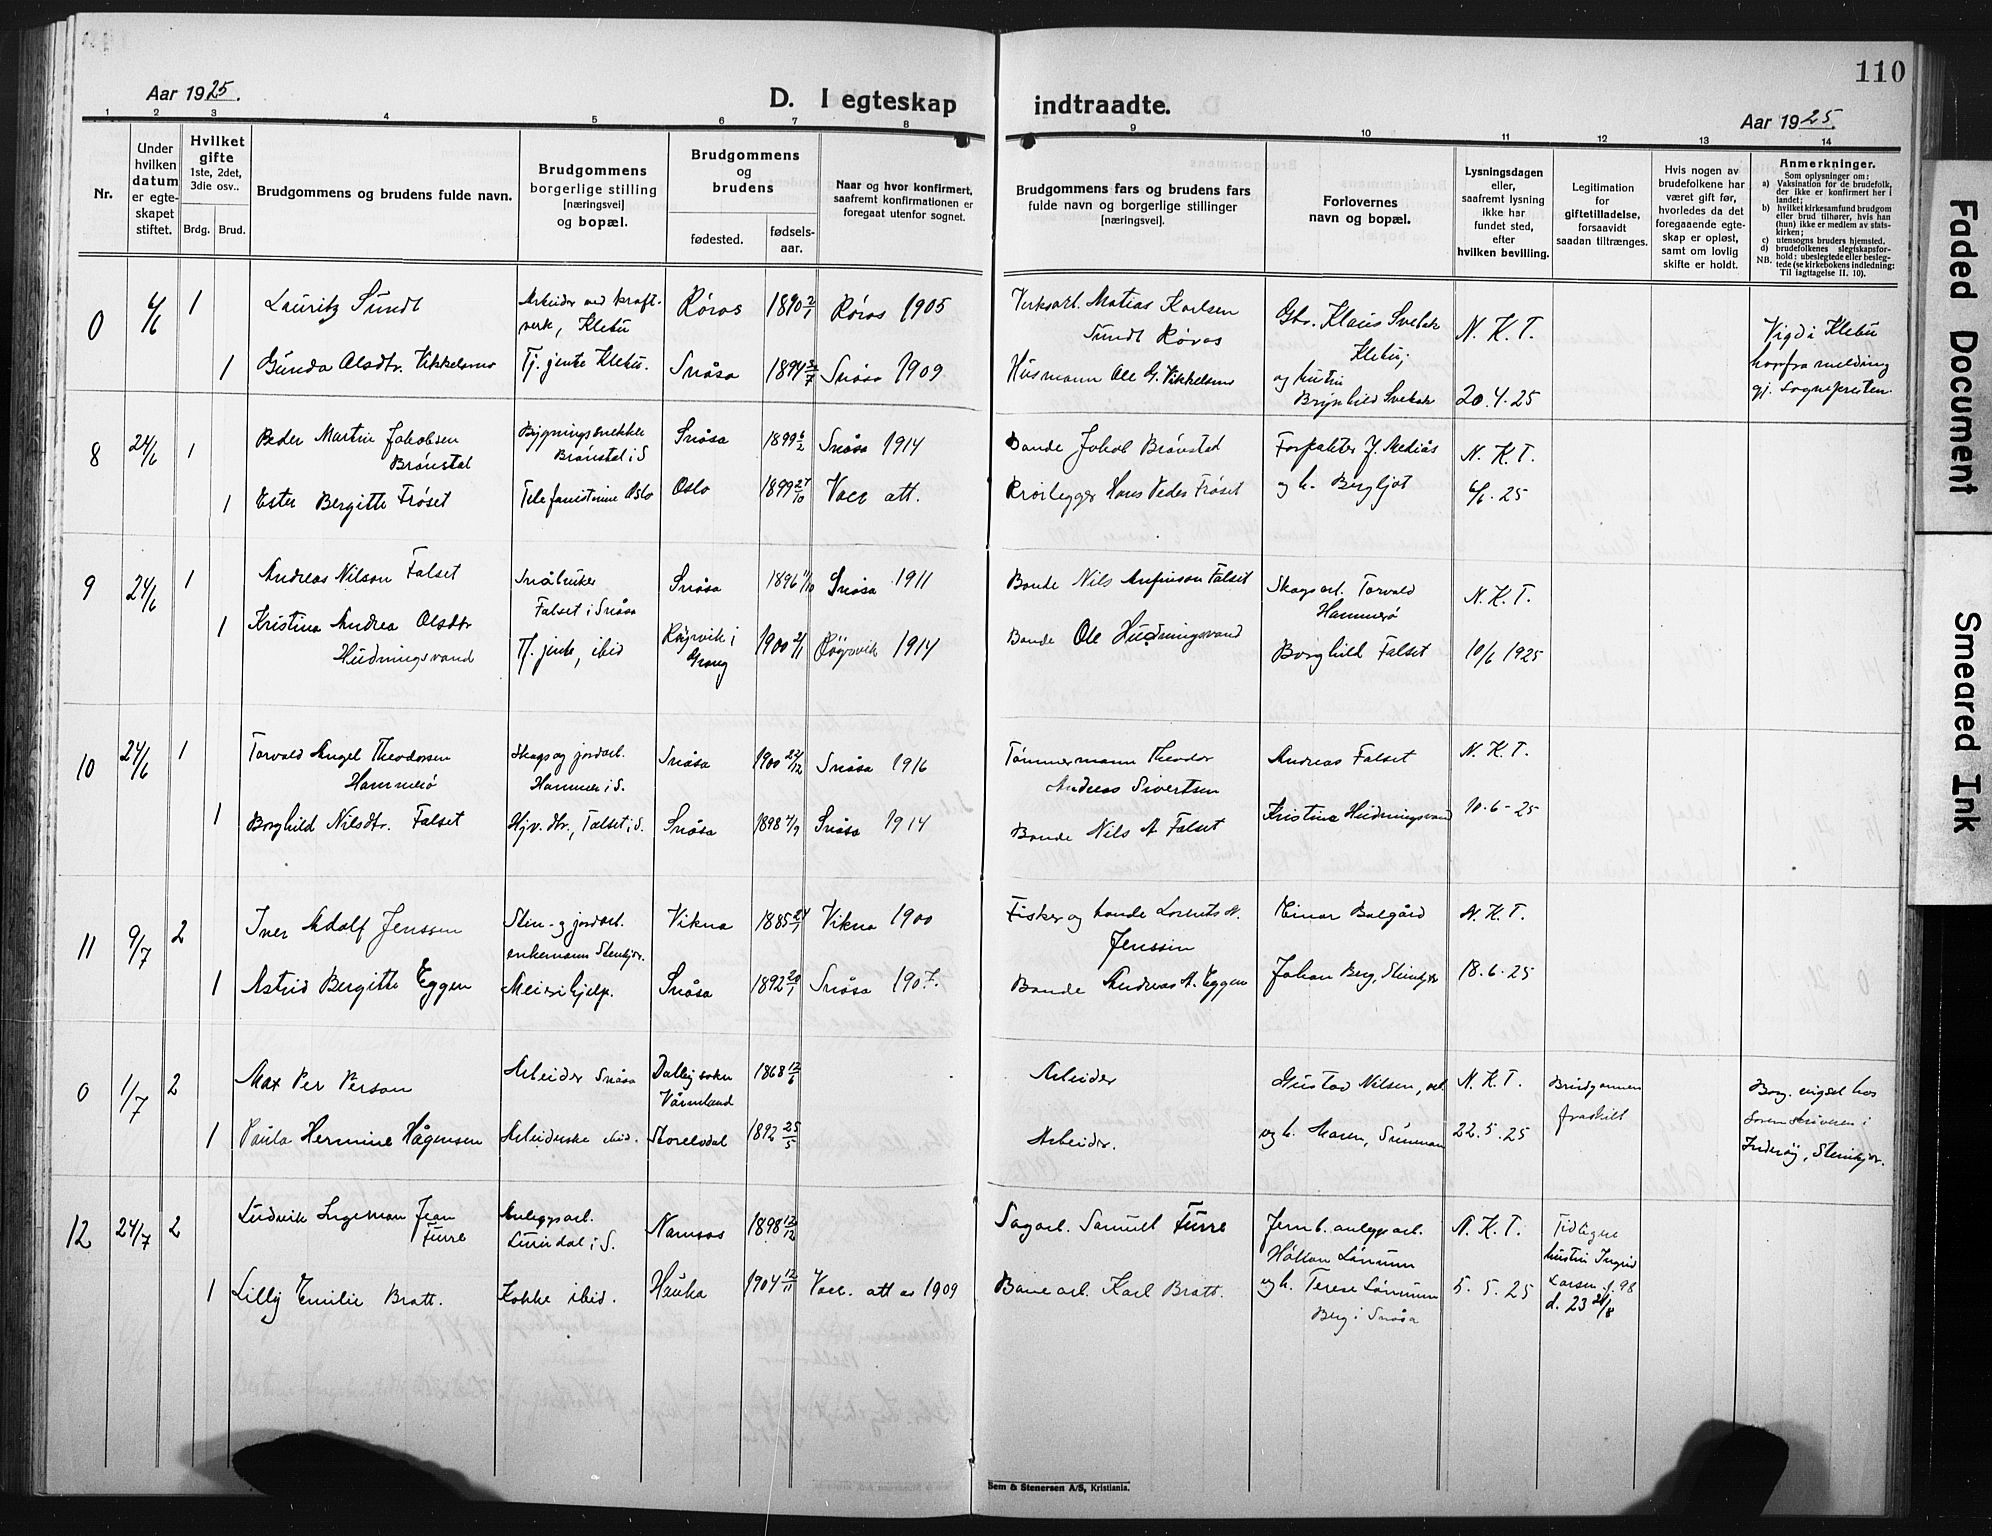 110
Aar 1925.
D. I egteskap indtraadte.
Aar 1925.
1 2 3 4 5 6 7 8 9 10 11 12 13 14
Nr.
Under hvilken datum er egteskapet stiftet.
Hvilket gifte
1ste, 2det, 3die osv..
Brdg. Brud.
Brudgommens og brudens fulde navn.
Brudgommens borgerlige stilling [næringsvei] og bopæl.
Brudgommens og brudens
fødested.
fødselsaar.
Naar og hvor konfirmert, saafremt konfirmationen er foregaat utenfor sognet.
Brudgommens fars og brudens fars fulde navn og borgerlige stillinger [næringsvei].
Forlovernes navn og bopæl.
Lysningsdagen eller, saafremt lysning ikke har fundet sted, efter hvilken bevilling.
Legitimation for giftetilladelse, forsaavidt saadan tiltrænges.
Hvis nogen av brudefolkene har været gift før, hvorledes da det foregaaende egteskap er opløst, samt om lovlig skifte er holdt.
Anmerkninger.
Som oplysninger om:
a) Vaksination for de brudefolk, der ikke er konfirmert her i landet;
b) hvilket kirkesamfund brudgom eller brud tilhører, hvis han (hun) ikke er medlem av statskirken;
c) utensogns bruders hjemsted.
d) brudefolkenes slegtskapsforhold: ubeslegtede eller beslegtede (se kirkebokens indledning:
NB. Til iagttagelse II. 10).
0 6/6 1 Lauritz Sundt Arbeider ved kraftverk, Klebu Røros 1890 2/1 Røros 1905 Verksarb. Matias Karlsen Sundt Røros Gbr. Klaus Svebak Klebu; N. K. T. Vigd i Klebu
1 Gunda Olsdtr. Vikkelsmo Tj. jente Klebu. Snåsa 1894 Snåsa 1909 Husmann Ole G. Vikkelsmo og hustru Brynhild Svebak 20.4.25 herfra melding gj. sognepresten
8 24/6 1 Peder Martin Jakobsen Brønstad Bygningssnekker Brønstad i S Snåsa 1899 6/2 Snåsa 1914 Bonde Jakob Brønstad Forpakter J. Mediås N. K. T.
1 Ester Bergitte Frøset Telefonistinne Oslo Oslo 1899 27/10 Vacc att. Rørlegger Hans Peder Frøset og h. Bergljot 6/6. 25
9 24/6 1 Andreas Nilsen Falset Småbruker Falset i Snåsa Snåsa 1896 11/10 Snåsa 1911 Bonde Nils Anfinson Falset Skogsarb. Torvald Hammerø N. K. T.
1 Kristina Andrea Olsdtr Hudningsvand Tj. jente, ibid Røyrvik i Grong 1900 2/1 Røyrvik 1914 Bonde Ole Hudningsvand Borghild Falset 10/6 1925
10 24/6 1 Torvald Angel Theodorsen Hammerø Skogs og jordarb. Hammer i S. Snåsa 1900 22/12 Snåsa 1916 Tømmermann Theodor Andreas Sivertsen Andreas Falset N. K. T.
1 Borghild Nilsdtr. Falset Hjv. dtr., Falset i S. Snåsa 1898 4/9 Snåsa 1914 Bonde Nils A Falset Kristina Hudningsvand 10.6-25
11 9/7 2 Iver Adolf Jenssen Sten- og jordarb. enkemann Stenkjær. Vikna 1885 Vikna 1900 Fisker og bonde Lorents N. Jenssen Einar Bolgård N. K. T.
1 Astrid Bergitte Eggen Meierihjelp. Snåsa 1892 20/1 Snåsa 1907. Bonde Andreas A. Eggen Johan Berg, Steinkjer 18.6.25
0 1/7 2 Max Per Person Arbeider Snåsa Dalby sokn Värmland 1868 12/6 Arbeider Gustav Nilsen, N. K. T. Brudgommen fraskilt Borg. vigsel hos
1 Paula Hermine Hågensen Arbeiderske ibid. Storelvdal 1892 25/5 Arbeider. og h. Maren, 22.5.25 Sorenskriveren i Inderøy, Steinkjer.
12 24/7 2 Ludvik Ingeman Jean Furre Anleggsarb. i S. Namsos 1898 12/12 Sagarb. Samuel Furre Jernb. anleggsarb. Håkon Lønnum N. K. T. Tidligere hustru Ingrid Larsen f. 98 d. 23 21/8
1 Lilly Emilie Bratt. Kokke ibid. 1904 12/11 Vacc. att av 1909 Bane arb. Karl Bratt. og h. Terese Lønnum Berg i Snåsa 5.5.25
Sem & Stenersen A/S, Kristiania.
Faded Document
Smeared Ink